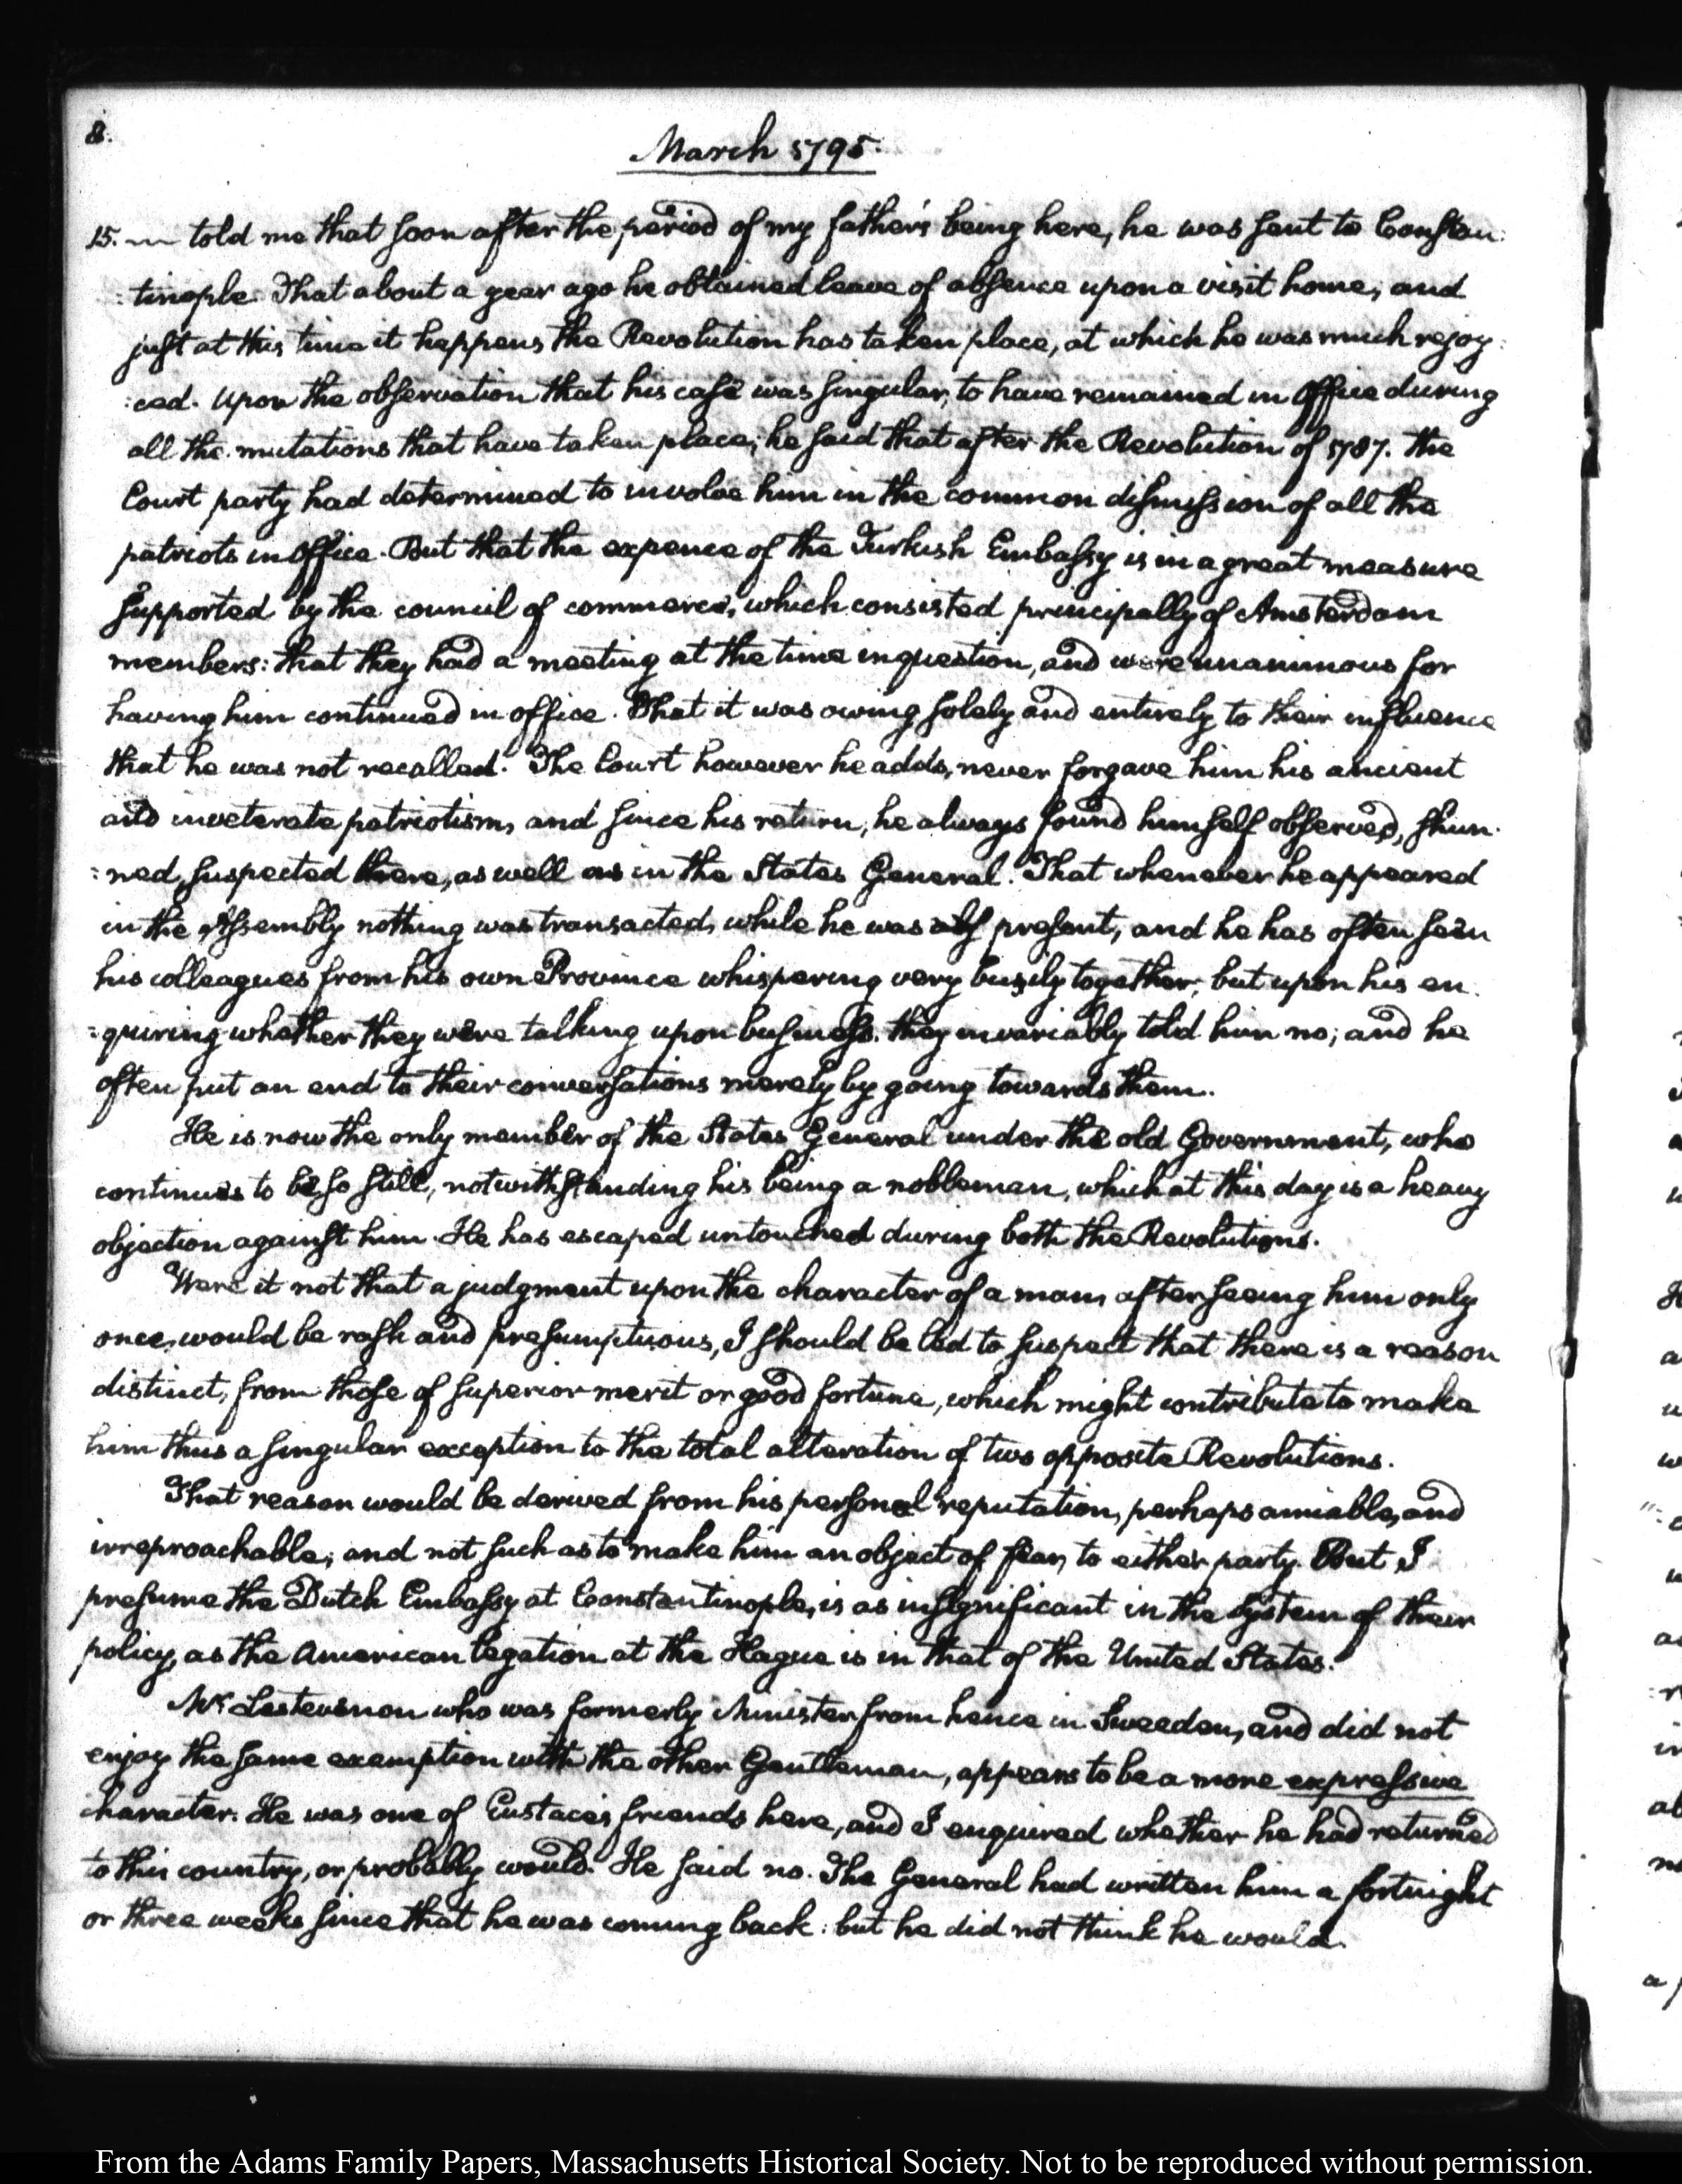 8.
March 1795.
15. told me that soon after the period of my father's being here, he was sent to Constan:
:tinople. That about a year ago he obtained leave of absence upon a visit home; and
just at this time it happens the Revolution has taken place, at which he was much rejoy:
:ced. Upon the observation that his case was singular, to have remained in Office during
all the mutations that have taken place; he said that after the Revolution of 1787. the
Court party had determined to involve him in the common dismission of all the
patriots in Office. But that the expence of the Turkish Embassy is in a great measure
supported by the council of commerce, which consisted principally of Amsterdam
members: that they had a meeting at the time in question, and were unanimous for
having him continued in office. That it was owing solely and entirely to their influence
that he was not recalled. The Court however he adds, never forgave him his ancient
and inveterate patriotism, and since his return, he always found himself observed, shun:
:ned, suspected there, as well as in the States General. That whenever he appeared
in the Assembly nothing was transacted, while he was present, and he has often seen
his colleagues from his own Province whispering very busily together; but upon his en:
:quiring whether they were talking upon business. they invariably told him no; and he
often put an end to their conversations merely by going towards them.
He is now the only member of the States General under the old Government, who
continues to be so still, notwithstanding his being a nobleman, which at this day is a heavy
objection against him. He has escaped untouched during both the Revolutions.
Were it not that a judgment upon the character of a man, after seeing him only
once, would be rash and presumptuous, I should be led to suspect that there is a reason
distinct, from those of superior merit or good fortune, which might contribute to make
him thus a singular exception to the total alteration of two opposite Revolutions.
That reason would be derived from his personal reputation, perhaps amiable, and
irreproachable; and not such as to make him an object of fear, to either party. But I
presume the Dutch Embassy at Constantinople, is as insignificant in the system of their
policy, as the American legation at the Hague is in that of the United States.
Mr. Lestevenon who was formerly Minister from hence in Sweeden, and did not
enjoy the same exemption with the other Gentleman, appears to be a more expressive
character. He was one of Eustace's friends here, and I enquired whether he had returned
to this country, or probably would. He said no. The General had written him a fortnight
or three weeks since that he was coming back: but he did not think he would.
From the Adams Family Papers, Massachusetts Historical Society. Not to be reproduced without permission.